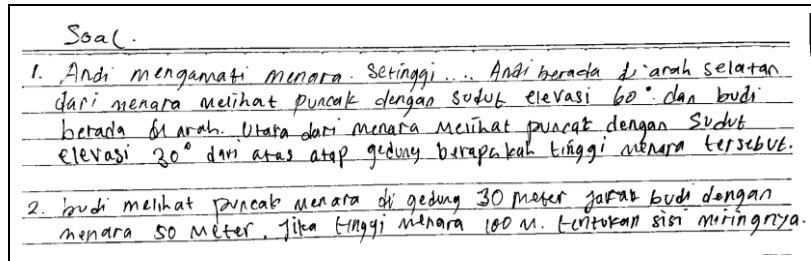 Soal.
1. Andi mengamati menara. Setinggi .... Andi berada di arah selatan
dari menara melihat puncak dengan sudut elevasi 60°. dan budi
berada di arah. Utara dari menara melihat puncak dengan sudut
elevasi 30° dari atas atap gedung berapakah tinggi menara tersebut.
2. budi melihat puncak menara di gedung 30 meter jarak budi dengan
menara 50 meter. Jika tinggi menara 100 m. tentukan sisi miringnya.